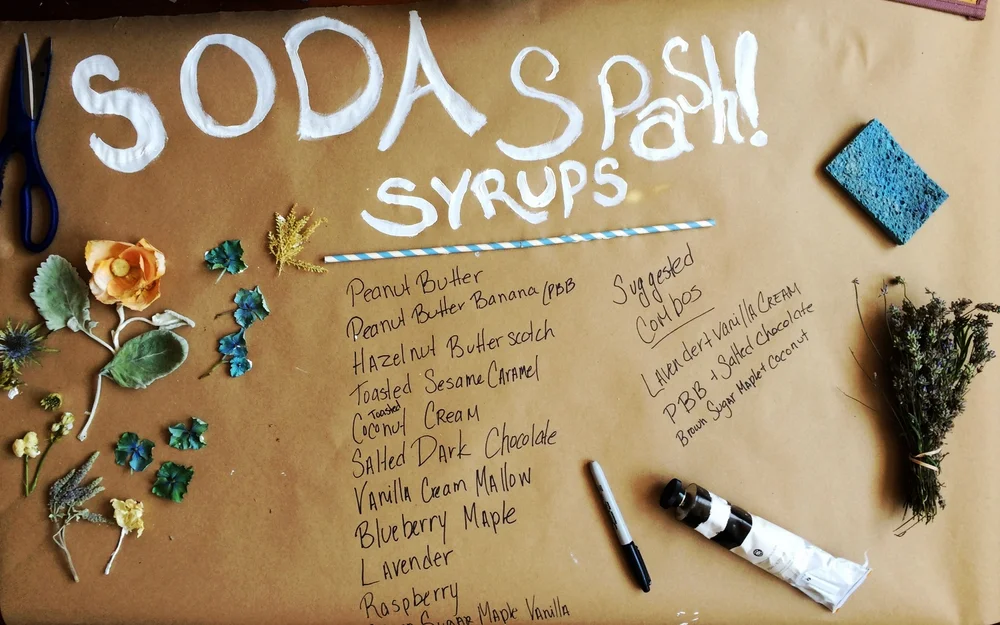 SODA SPash!
SYRUPS
Peanut Butter
Peanut Butter Banana (PBB
Hazelnut Butterscotch
Toasted Sesame Caramel
Toasted
Coconut Cream
Salted Dark Chocolate
Vanilla Cream Mallow
Blueberry Maple
Lavender
Raspberry
Sugar Maple Vanilla
Suggested
Combos
Lavender + Vanilla Cream
PBB + Salted Chocolate
Brown Sugar Maple + Coconut